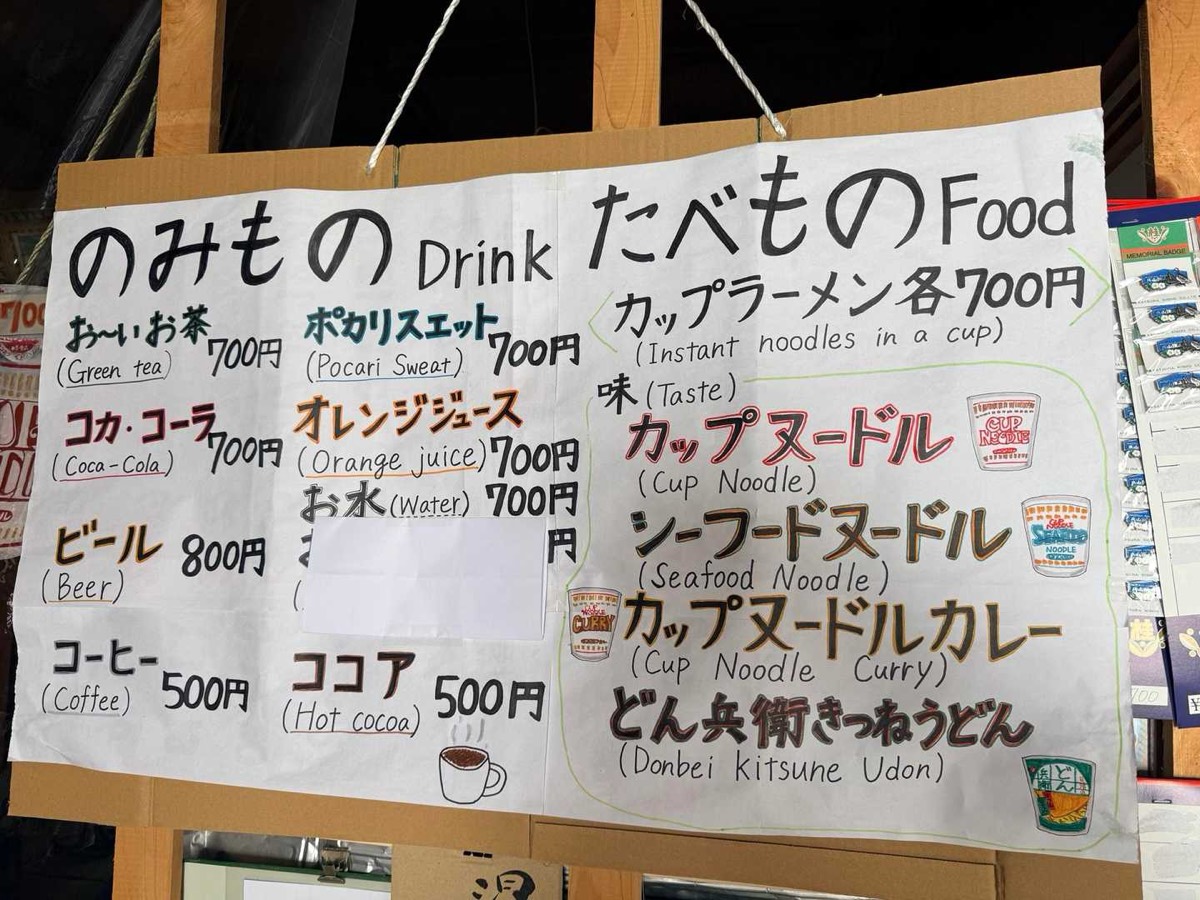 のみもの Drink
おーいお茶 700円
(Green tea)
コカ・コーラ 700円
(Coca-Cola)
ビール 800円
(Beer)
コーヒー 500円
(Coffee)
ポカリスエット 700円
(Pocari Sweat)
オレンジジュース
(Orange juice) 700円
お水 (Water) 700円
円
ココア 500円
(Hot cocoa)
たべもの Food
カップラーメン各700円
(Instant noodles in a cup)
味 (Taste)
カップヌードル
(Cup Noodle)
CUP NOODLE
シーフードヌードル
(Seafood Noodle)
CUP NOODLE
SEAFOOD
NOODLE
カップヌードルカレー
(Cup Noodle Curry)
CUP NOODLE
CURRY
どん兵衛きつねうどん
(Donbei Kitsune Udon)
どん
兵衛
MEMORIAL BADGE
700